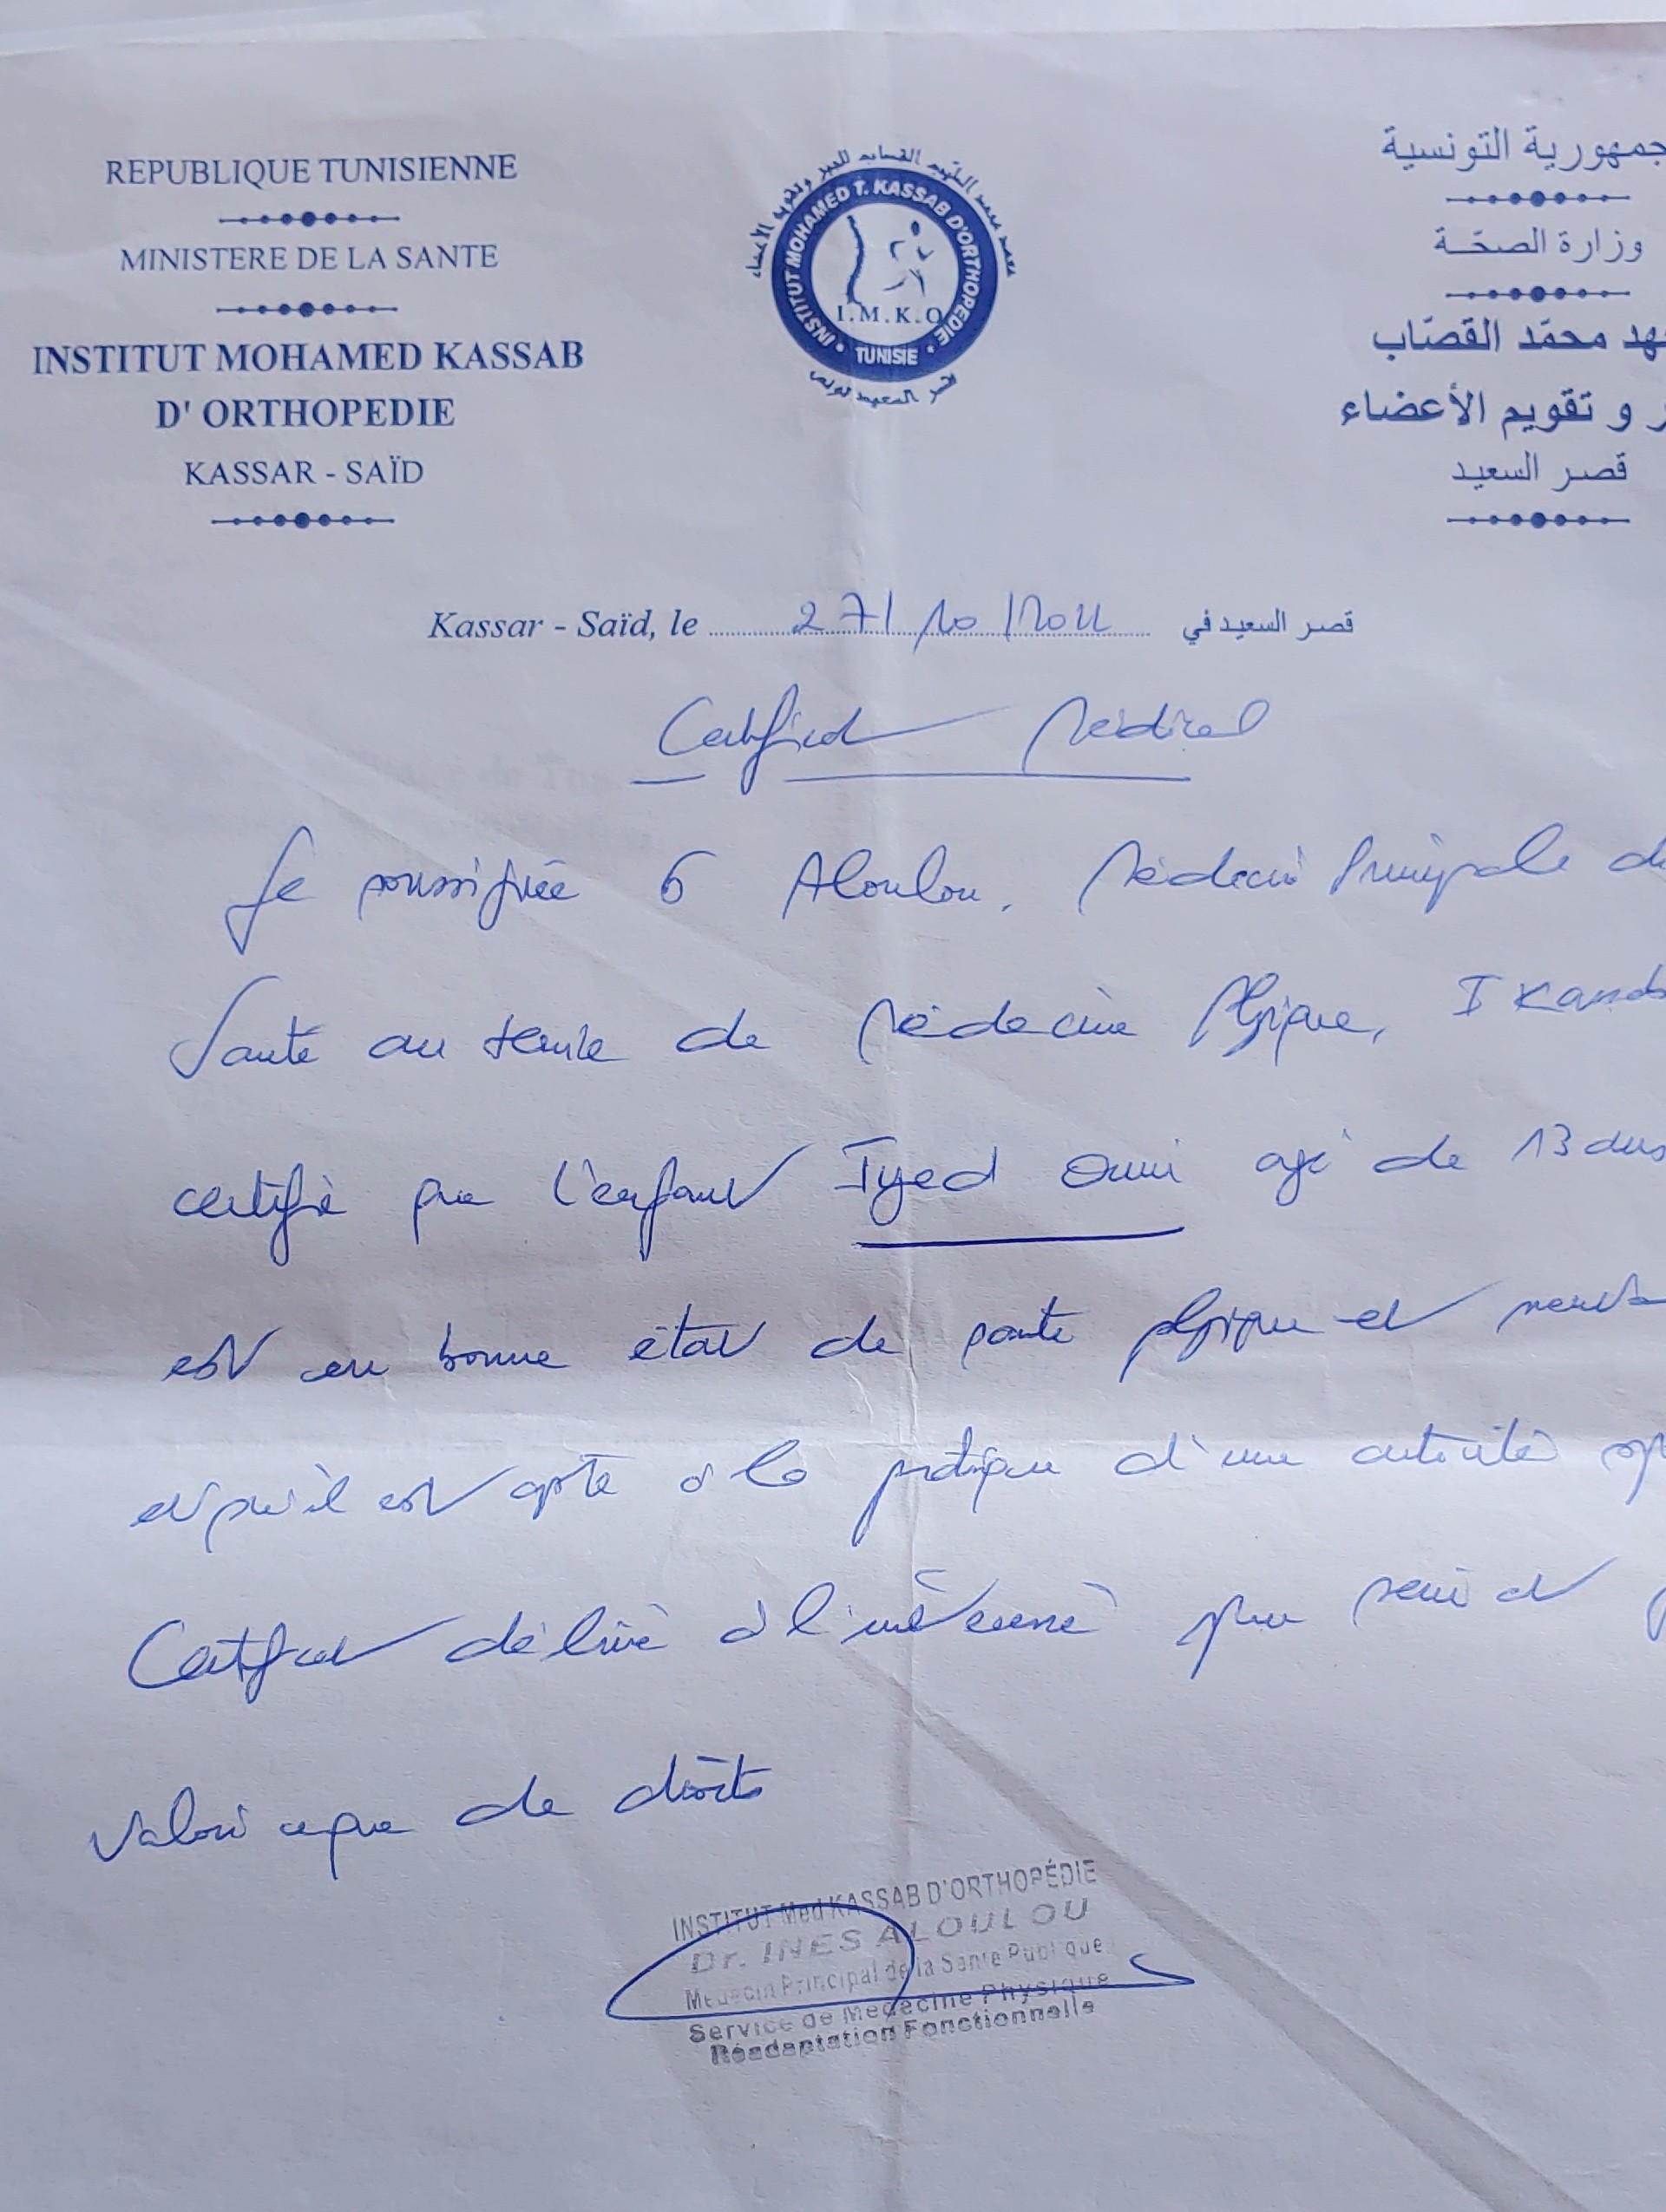 REPUBLIQUE TUNISIENNE
MINISTERE DE LA SANTE
INSTITUT MOHAMED KASSAB
D' ORTHOPEDIE
KASSAR - SAÏD
INSTITUT MOHAMED T. KASSAB D'ORTHOPEDIE
I.M.K.O
TUNISIE
جمهورية التونسية
وزارة الصحّة
هد محمّد القصّاب
ر و تقويم الأعضاء
قصر السعيد
Kassar - Saïd, le 27/10/ قصر السعيد في
Certificat Médical
Je soussignée Aloulou. Médecin Principale de
Santé au service de Médecine Physique, I Kassab
certifie que l'enfant Iyed agé de 13 ans
est en bonne état de santé physique et mental
et qu'il est apte à la pratique d'une activité sp
Certificat délivré à l'intéressé pour servir et
valoir ce que de droit
INSTITUT Med KASSAB D'ORTHOPÉDIE
Dr. INES ALOULOU
Médecin Principal de la Santé Publique
Service de Médecine Physique
Réadaptation Fonctionnelle